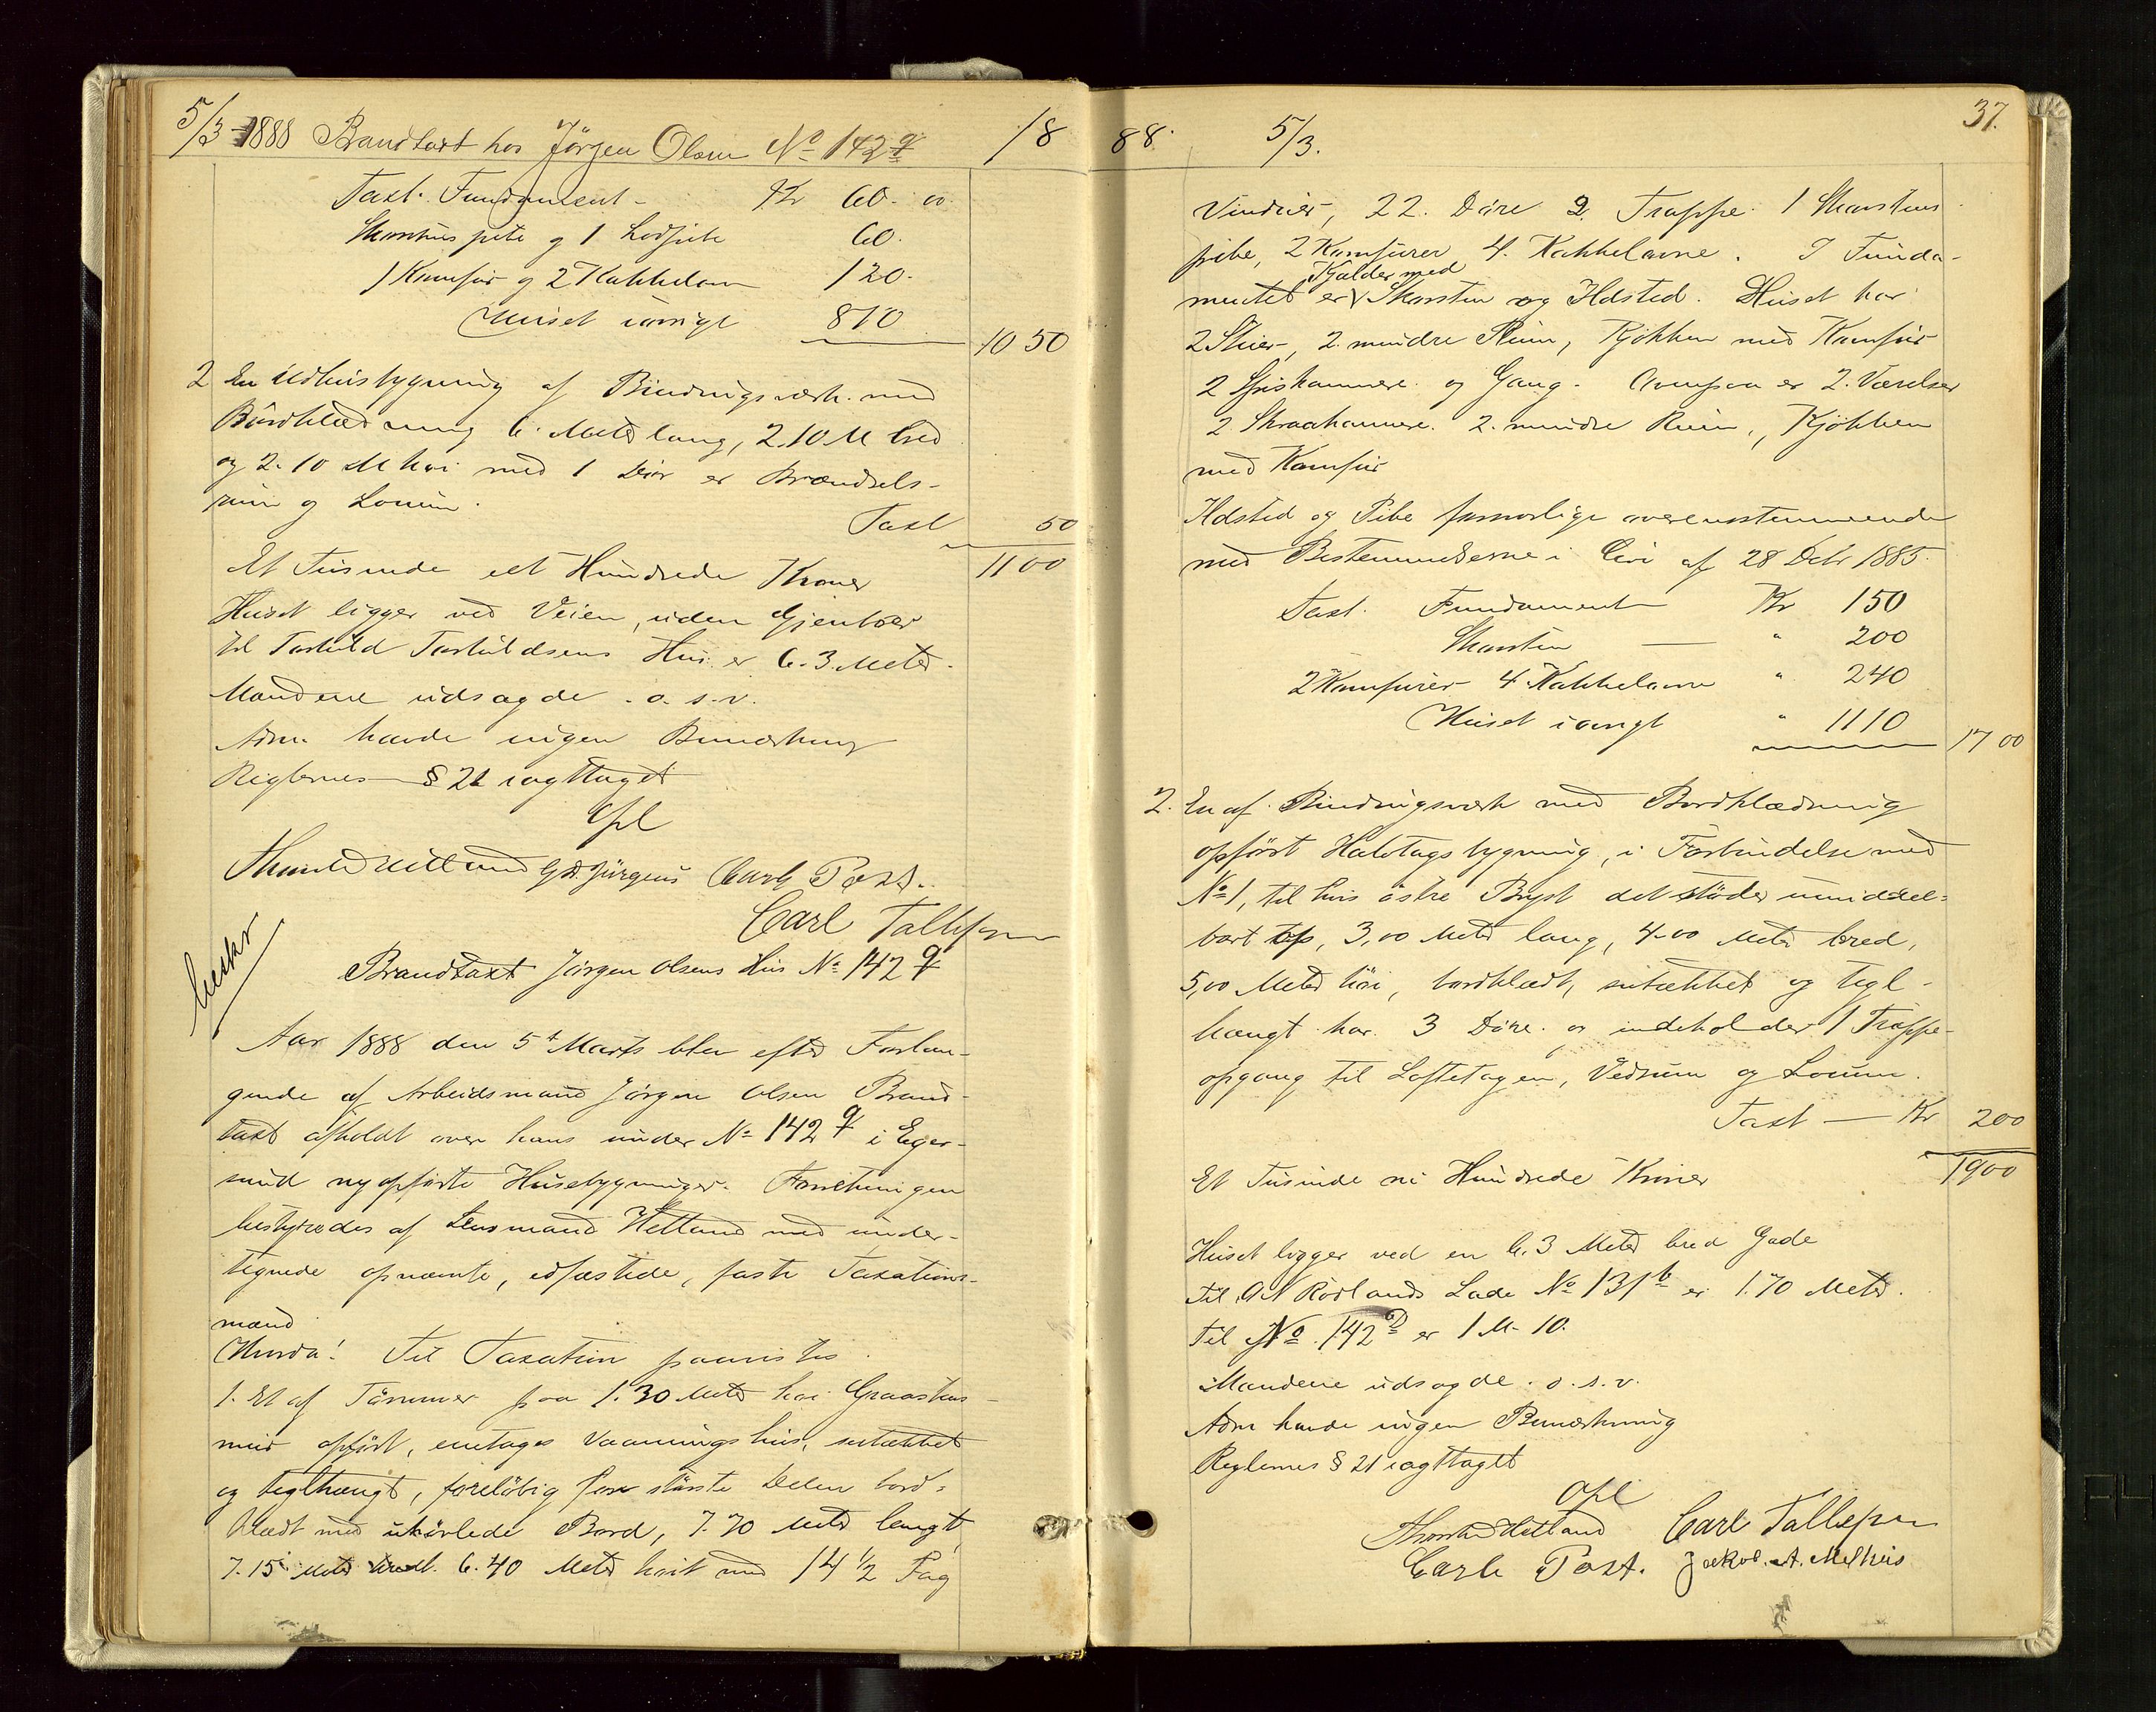 5/3 1888 Brandtaxt hos Jörgen Olsen No 142 q 18
Taxt. Fundament - Kr 60. 00
Skorstens pibe og 1 Lodpibe 60.
1 Komfur og 2 Kakkelovne 120.
Huset iövrigt 810 1050
2 En Udhusbygning af Bindingsværk med
Bordklædning 6. Meter lang, 2.10 M bred
og 2.10 M höi med 1 Dör er Brændsels-
rum og Locum.
Taxt 50
Et Tusinde et Hundrede Kroner 1100
Huset ligger ved Veien, uden Gjenboer
til Torkild Torkildsens Hus er 6.3 Meter.
Mændene udsagde . o. s. v.
Adm. havde ingen Bemærkning
Reglernes § 21 iagttaget
Opl
Hetland G. Jörgens Carl Post.
Carl Tallefsen
Brandtaxt Jörgen Olsens Hus No 142 q
Aar 1888 den 5t Marts blev efter Forlan-
gende af Arbeidsmand Jörgen Olsen Brand-
taxt afholdt over hans under No 142 q i Eger-
sund nyopförte Husebygninger. Forretningen
bestyredes af Lensmand Hetland med under-
tegnede opnævnte, edfæstede, faste Taxations-
mænd
Hvorda! Til Taxation paavistes
1. Et af Tömmer paa 1.30 Meter höi Graastens
mur opfört, enetages Vaaningshus, sutækket
og teglhængt, foreløbig for störste Delen bord-
klædt med uhövlede Bord, 7.70 Meter langt,
7.15 Meter bredt. 6.40 Meter höit med 14 1/2 Fag
88. 5/3. 37.
Vinduer, 22. Döre 2. Trapper 1 Skorstens
pibe, 2 Komfurer 4. Kakkelovne. I Funda-
Kjælder med
mentet er Skorsten og Ildsted. Huset har
2 Stuer, 2. mindre Rum, Kjökken med Komfur
2 Spiskammere og Gang. Ovenpaa er 2. Værelser
2 Skraakammere. 2. mindre Rum, Kjökken
med Komfur
Ildsted og Pibe forsvarlige overensstemmende
med Bestemmelserne i Circ af 28 Debr 1885.
Taxt. Fundament Kr 150
Skorsten — " 200
2 Komfurer 4 Kakkelovne " 240
Huset iövrigt " 1110 1700
2. En af Bindingsværk med Bordklædning
opfört Halvtagsbygning, i Forbindelse med
No 1, til hvis östre Bryst det stöder umiddel-
bart op, 3,00 Meter lang, 4.00 Meter bred,
5,00 Meter höi, bordklædt, sutækket og tegl-
hængt har 3 Döre. og indeholder 1 Trappe-
opgang til Loftetagen, Vedrum og Locum.
Taxt — Kr 200
Et Tusinde ni Hundrede Kroner 1900
Huset ligger ved en 6.3 Meter bred Gade
til A N Rödlands Lade No 131 b er 1.70 Meter.
til No. 142 D er 1 M. 10.
Mændene udsagde. o. s. v.
Adm havde ingen Bemærkning
Reglernes § 21 iagttaget
Opl
Hetland Carl Tallefsen
Carl Post. Jakob. A. Melhus